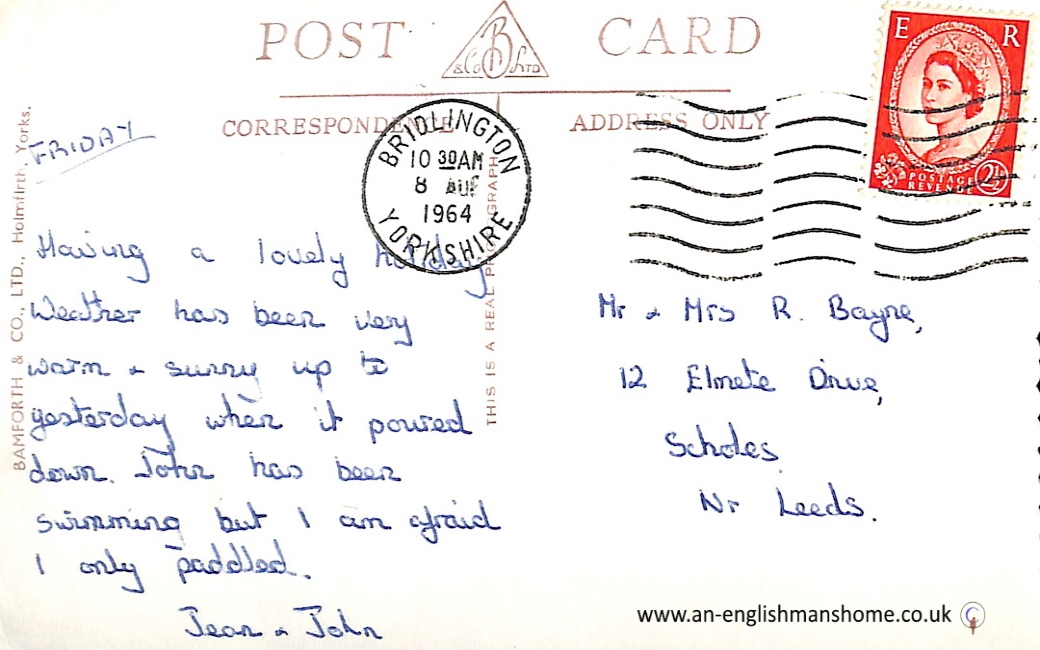 POST CARD
B
& Co LTD
E R
POSTAGE
REVENUE
2½
CORRESPONDENCE
ADDRESS ONLY
BRIDLINGTON
10 30AM
8 AUG
1964
YORKSHIRE
BAMFORTH & CO., LTD., Holmfirth, Yorks.
THIS IS A REAL PHOTOGRAPH
FRIDAY
Having a lovely holiday
Weather has been very
warm & sunny up to
yesterday when it poured
down. John has been
swimming but I am afraid
I only paddled.
Jean & John
Mr & Mrs R. Bayne,
12 Elmete Drive,
Scholes
Nr Leeds.
www.an-englishmanshome.co.uk ©